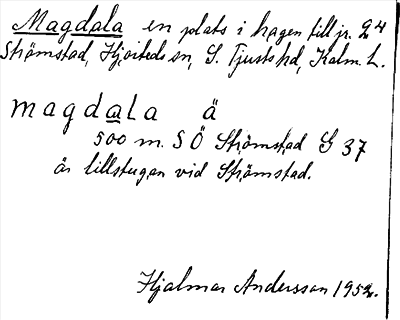 Magdala en plats i hagen till jr. 24
Strömstad, Hjorteds sn, S. Tjusts hd, Kalm. L.
magdala ä
500 m. SÖ Strömstad G 37
är lillstugan vid Strömstad.
Hjalmar Andersson 1952.